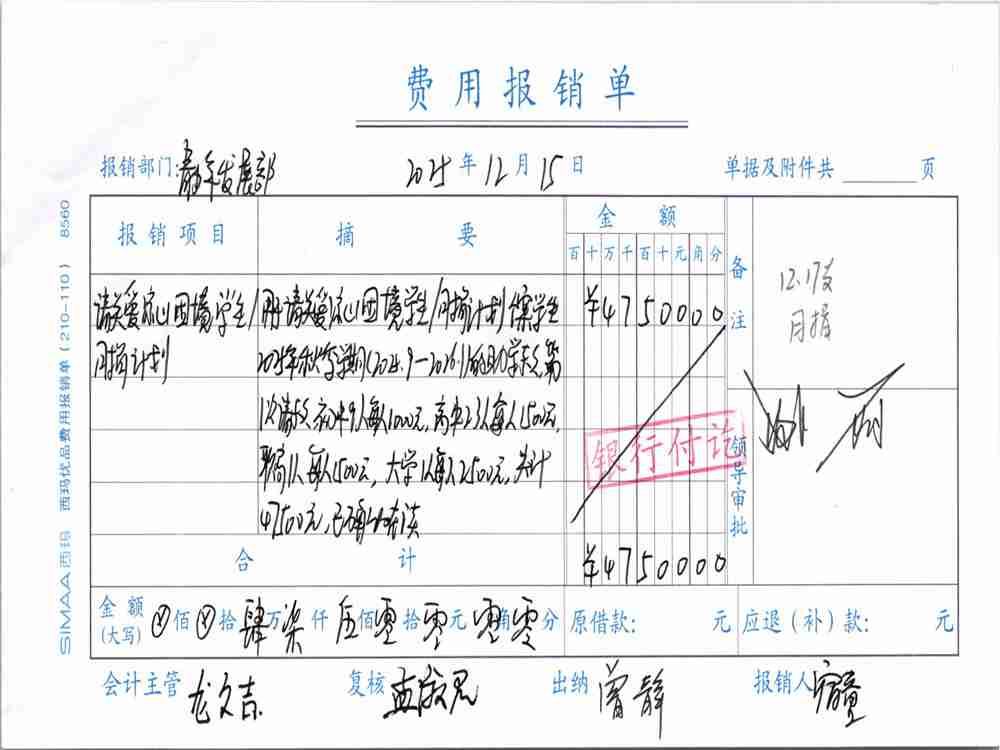 费用报销单
报销部门: 发展部 2025年12月15日 单据及附件共 页
报销项目 摘要 金额
百十万千百十元角分
备注
12.17发
月捐
请关爱 困境学生/月捐计划
册请关爱 困境学生/月捐计划 学生
2025年秋季学期(2025.9-2026.1)的助学款
请款 初中9人每人1000元,高中23人每人1500元,
职高1人每人1500元,大学 每人2500元,共计
47500元,已
¥4750000
银行付讫
领导审批
合计 ¥4750000
金额(大写) 佰 拾 肆万 柒仟 伍佰 零拾 零元 零角 零分 原借款: 元 应退(补)款: 元
会计主管 龙久吉 复核 孟 出纳 曾静 报销人
SIMAA西玛 西玛优品费用报销单(210-110) 8560